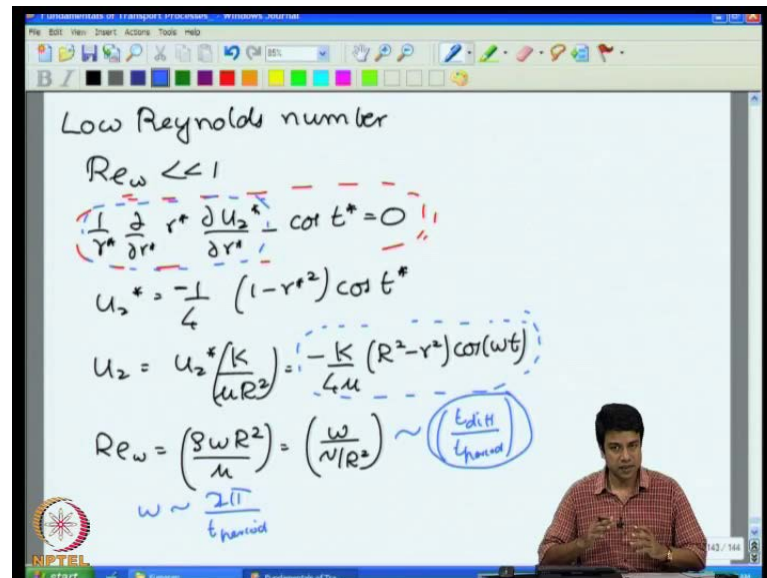 Fundamentals of Transport Processes_ - Windows Journal
File Edit View Insert Actions Tools Help
85%
B I
Low Reynolds number
Re_ω << 1
1/r* ∂/∂r* r* ∂u_z*/∂r* - cos t* = 0
u_z* = -1/4 (1-r*²) cos t*
u_z = u_z* (K/μR²) = -K/4μ (R²-r²) cos(ωt)
Re_ω = (ρωR²/μ) = (ω/ν/R²) ~ (t_diff/t_period)
ω ~ 2π/t_period
NPTEL
143 / 144
start
Fundamentals of Tra...